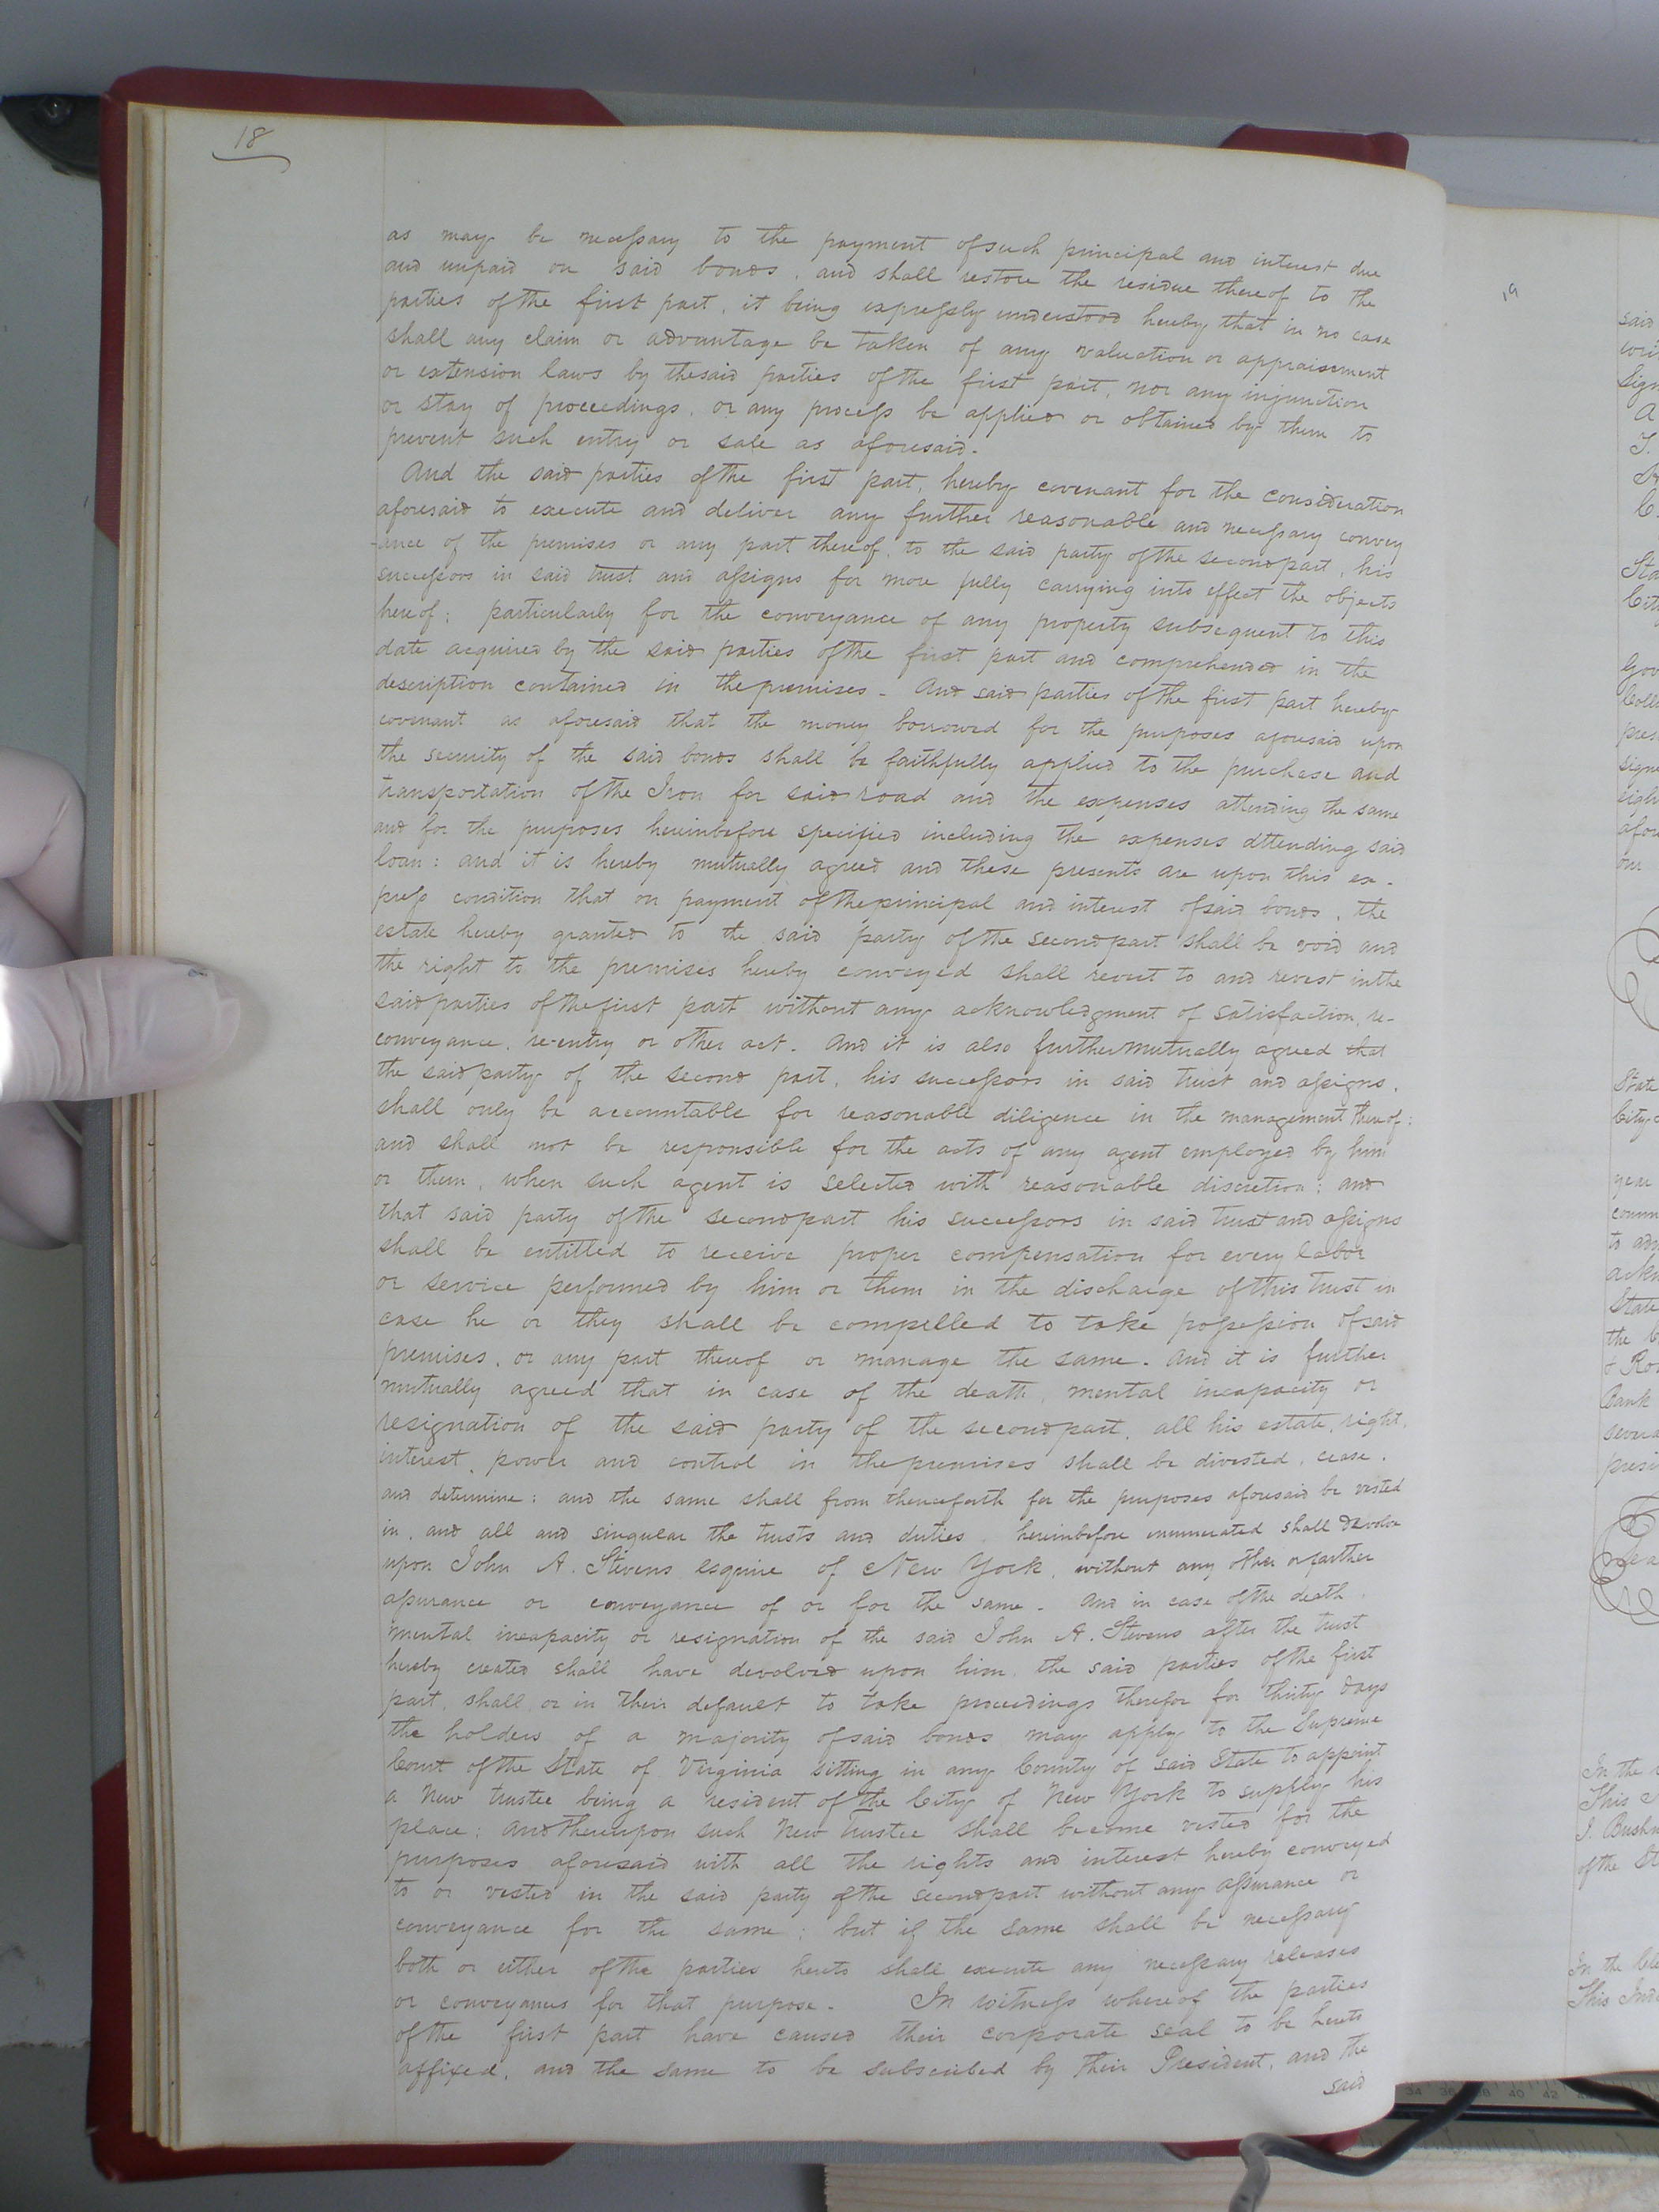 18
as may be necessary to the payment of such principal and interest due
and unpaid on said bonds, and shall restore the residue thereof to the
parties of the first part, it being expressly understood hereby that in no case
shall any claim or advantage be taken of any valuation or appraisement
or extension laws by the said parties of the first part, nor any injunction
or stay of proceedings, or any process be applied or obtained by them to
prevent such entry or sale as aforesaid.
And the said parties of the first part, hereby covenant for the consideration
aforesaid to execute and deliver any further reasonable and necessary convey
-ance of the premises or any part thereof, to the said party of the second part, his
successors in said trust and assigns for more fully carrying into effect the objects
hereof; particularly for the conveyance of any property subsequent to this
date acquired by the said parties of the first part and comprehended in the
description contained in the premises. And said parties of the first part hereby
covenant as aforesaid that the money borrowed for the purposes aforesaid upon
the security of the said bonds shall be faithfully applied to the purchase and
transportation of the Iron for said road and the expenses attending the same
and for the purposes hereinbefore specified including the expenses attending said
loan: and it is hereby mutually agreed and these presents are upon this ex-
press condition that on payment of the principal and interest of said bonds, the
estate hereby granted to the said party of the second part shall be void and
the right to the premises hereby conveyed shall revert to and revest in the
said parties of the first part without any acknowledgment of satisfaction, re-
conveyance, re-entry or other act. And it is also further mutually agreed that
the said party of the second part, his successors in said trust and assigns,
shall only be accountable for reasonable diligence in the management thereof:
and shall not be responsible for the acts of any agent employed by him
or them, when such agent is selected with reasonable discretion: and
that said party of the second part his successors in said trust and assigns
shall be entitled to receive proper compensation for every labor
or service performed by him or them in the discharge of this trust in
case he or they shall be compelled to take possession of said
premises, or any part thereof or manage the same. And it is further
mutually agreed that in case of the death, mental incapacity or
resignation of the said party of the second part, all his estate, right,
interest, power and control in the premises shall be divested, cease,
and determine: and the same shall from thenceforth for the purposes aforesaid be vested
in, and all and singular the trusts and duties, hereinbefore enumerated shall devolve
upon John A. Stevens esquire of New York, without any other or farther
assurance or conveyance of or for the same. And in case of the death,
mental incapacity or resignation of the said John A. Stevens after the trust
hereby created shall have devolved upon him, the said parties of the first
part, shall or in their default to take proceedings therefor for thirty days
the holders of a majority of said bonds may apply to the Supreme
Court of the State of Virginia sitting in any County of said State to appoint
a New trustee being a resident of the City of New York to supply his
place: And thereupon such New trustee shall become vested for the
purposes aforesaid with all the rights and interest hereby conveyed
to or vested in the said party of the second part without any assurance or
conveyance for the same; but if the same shall be necessary
both or either of the parties hereto shall execute any necessary releases
or conveyances for that purpose. In witness whereof the parties
of the first part have caused their corporate seal to be hereto
affixed, and the same to be subscribed by their President, and the
said
19
said
Sign
A
J.
C.
Sta
City
Gov
Coll
pres
signe
eigh
afor
our
State
City
year
comm
to adm
ackn
State
the
& Ro
Bank
severa
presi
In the
This
J. Bushn
of the St
In the Cle
This Inde
34 36 38 40 42